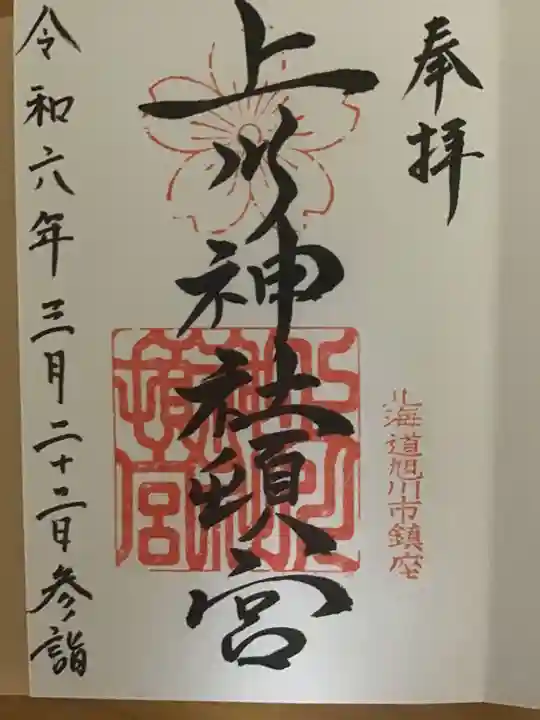 奉拝
北海道旭川市鎮座
上川神社頓宮
令和六年三月二十二日参詣